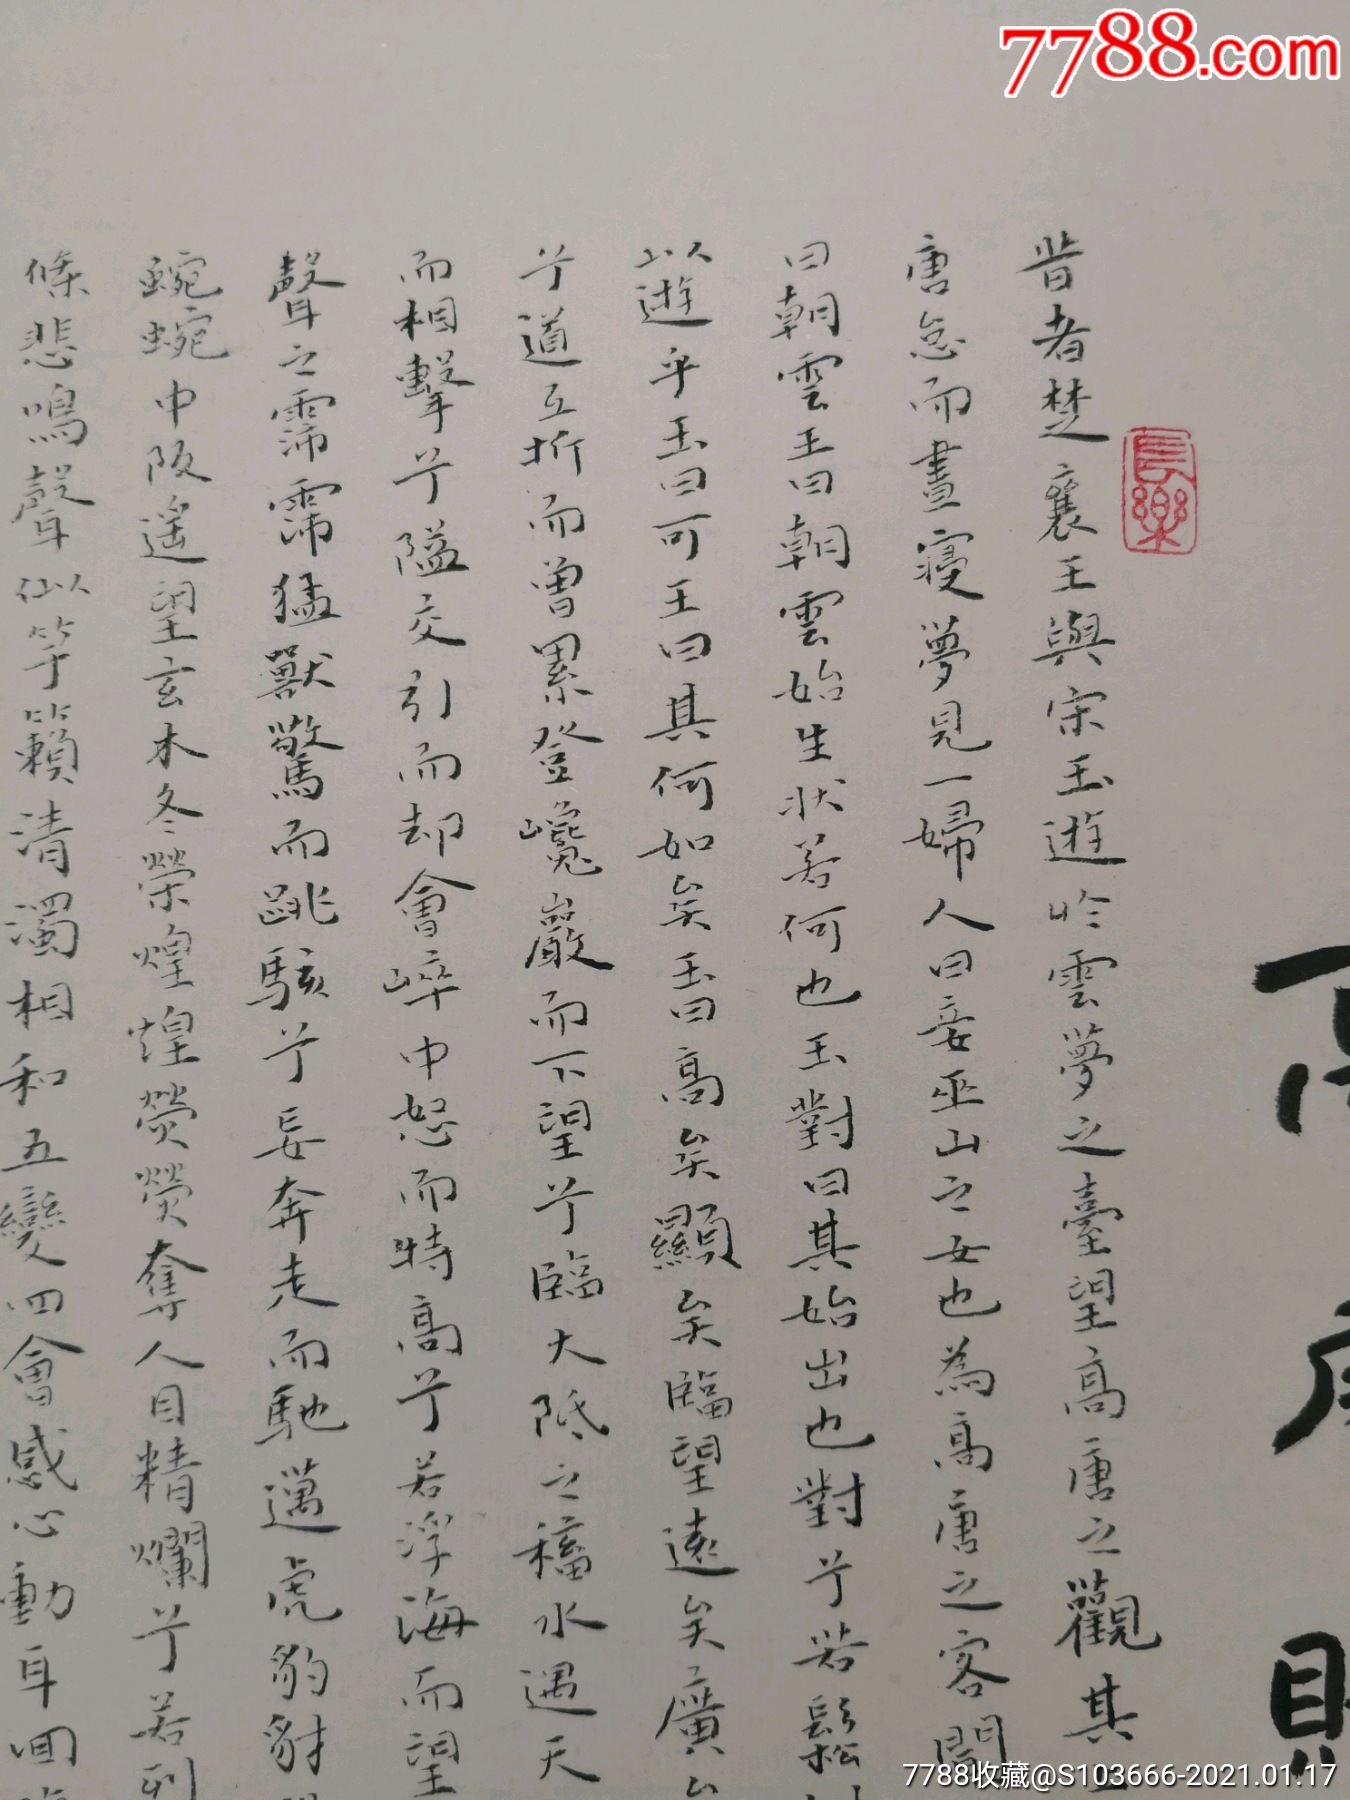 7788.com
高唐賦
長樂
昔者楚襄王與宋玉遊於雲夢之臺望高唐之觀其
唐怠而晝寢夢見一婦人曰妾巫山之女也為高唐之客聞
曰朝雲王曰朝雲始生狀若何也玉對曰其始出也對兮若鬆
以遊乎玉曰可王曰其何如矣玉曰高矣顯矣臨望遠矣廣
兮道互折而曾累登巉巖而下望兮臨大阺之稸水遇天
而相擊兮隘交引而却會崪中怒而特高兮若浮海而望
聲之霈霈猛獸驚而跳駭兮妄奔走而馳邁虎豹豺
蜿蜿中阪遙望玄木冬榮煌煌熒熒奪人目精爛兮若列
條悲鳴聲似竽籟清濁相和五變四會感心動耳回
7788收藏@S103666-2021.01.17